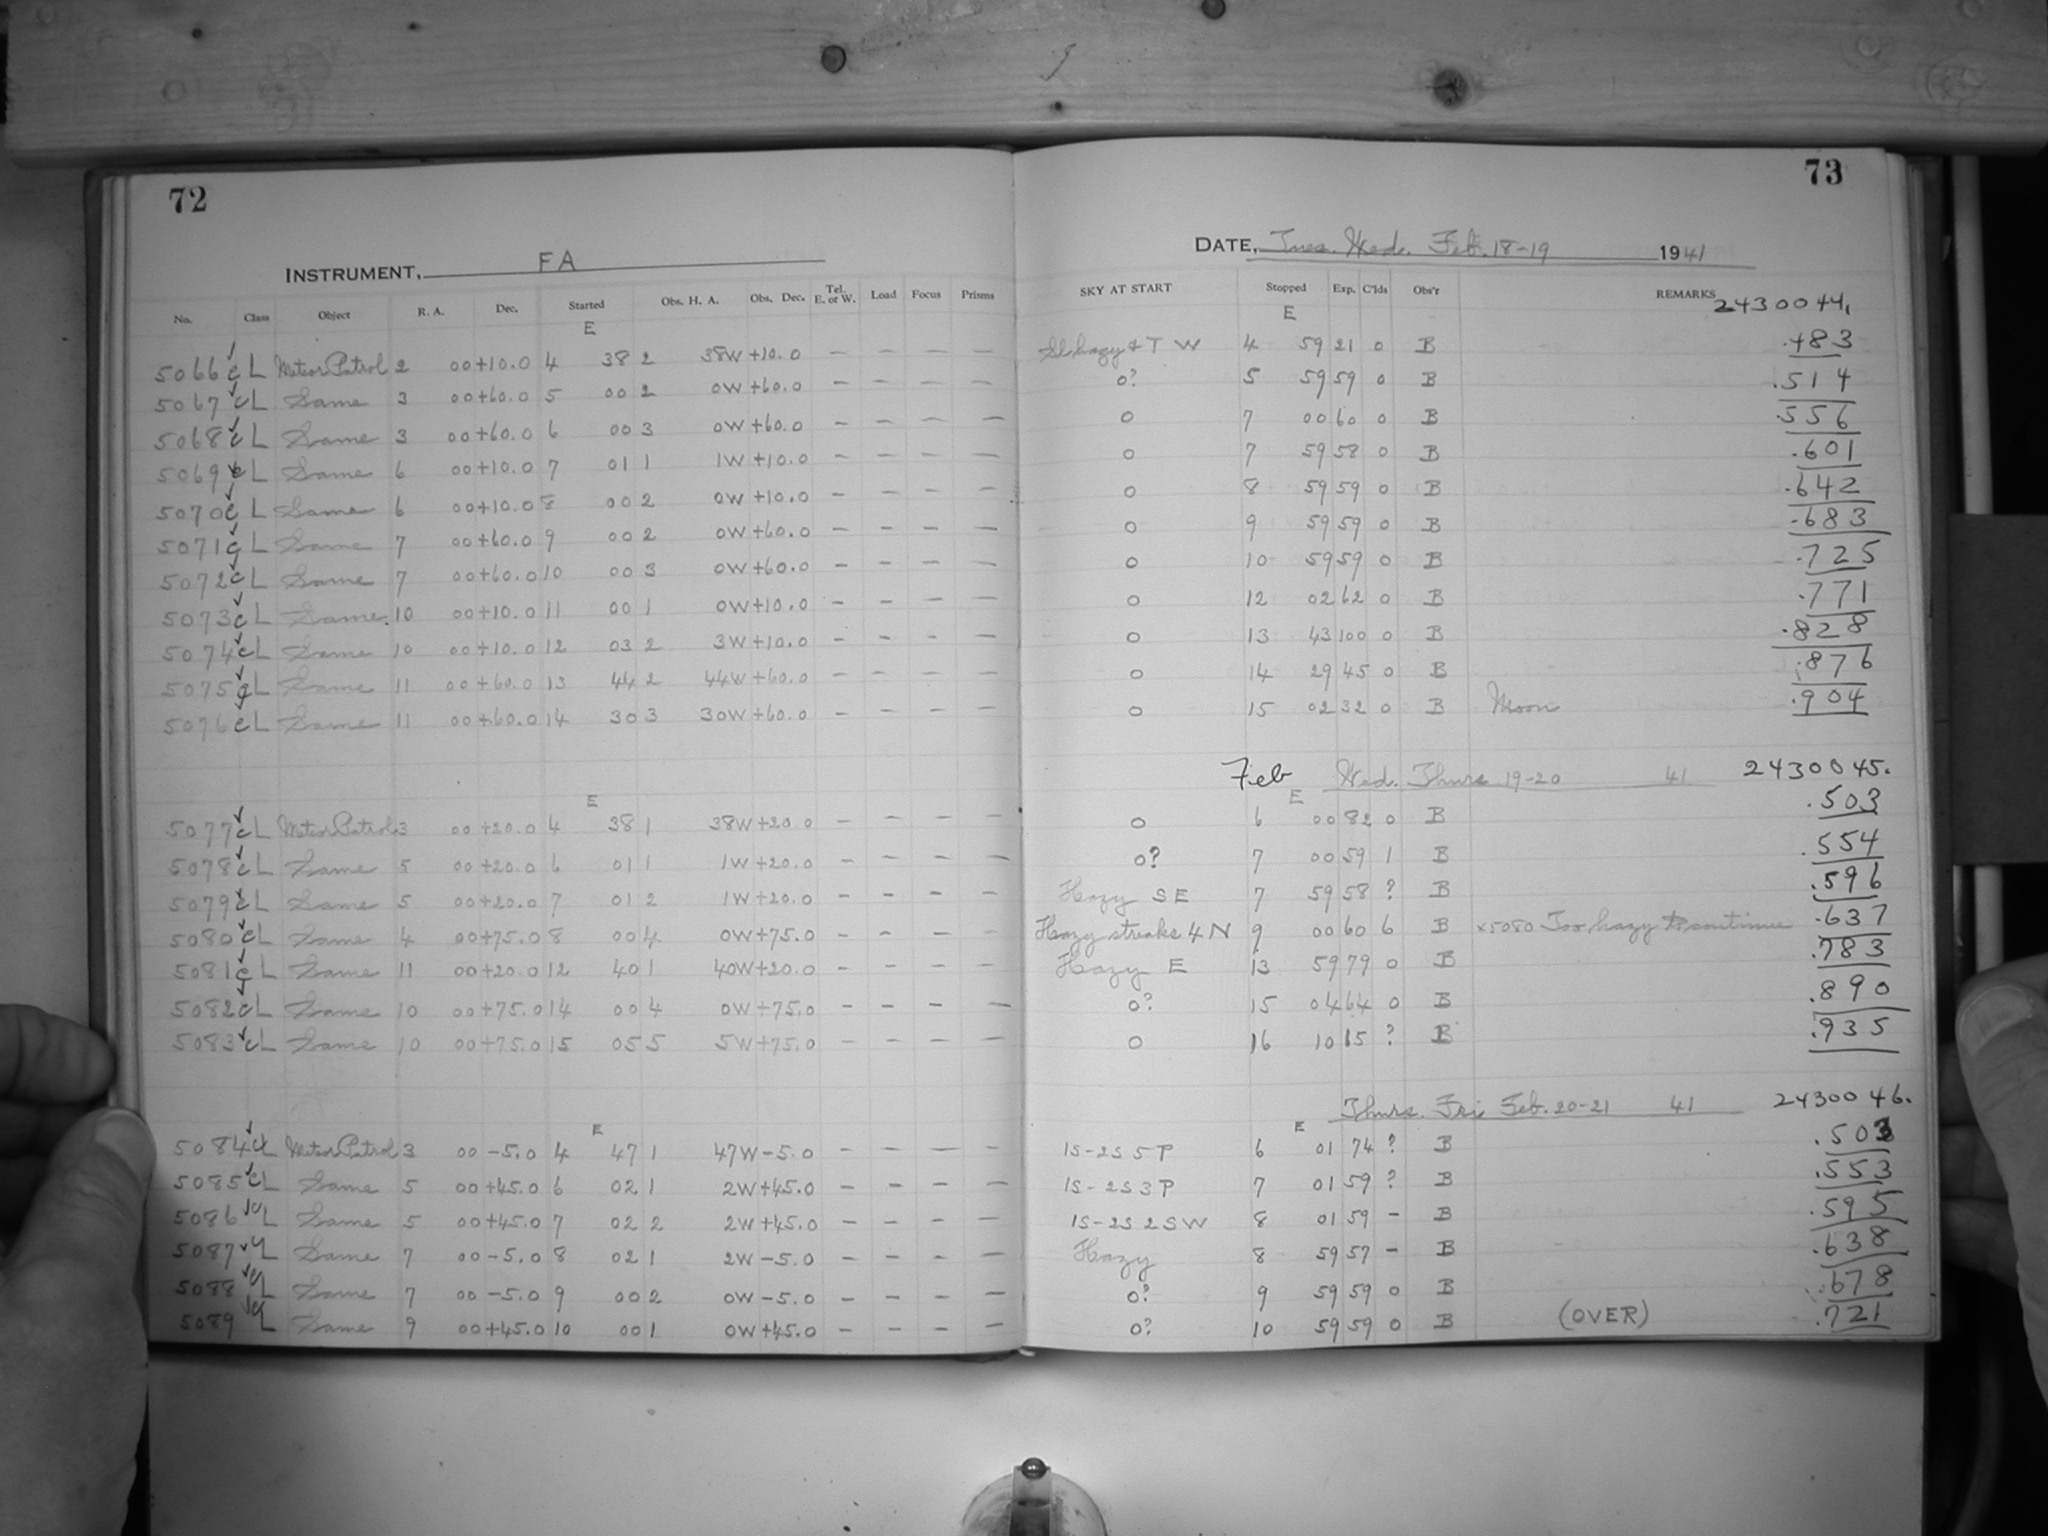 72
INSTRUMENT, FA
No. Class Object R. A. Dec. Started Obs. H. A. Obs. Dec. Tel. E. or W. Load Focus Prisms
E
5066 c L Meteor Patrol 2 00 +10.0 4 38 2 38W +10.0 — — — —
5067 c L Same 3 00 +60.0 5 00 2 0W +60.0 — — — —
5068 c L Same 3 00 +60.0 6 00 3 0W +60.0 — — — —
5069 c L Same 6 00 +10.0 7 01 1 1W +10.0 — — — —
5070 c L Same 6 00 +10.0 8 00 2 0W +10.0 — — — —
5071 c L Same 7 00 +60.0 9 00 2 0W +60.0 — — — —
5072 c L Same 7 00 +60.0 10 00 3 0W +60.0 — — — —
5073 c L Same. 10 00 +10.0 11 00 1 0W +10.0 — — — —
5074 c L Same 10 00 +10.0 12 03 2 3W +10.0 — — — —
5075 c L Same 11 00 +60.0 13 44 2 44W +60.0 — — — —
5076 c L Same 11 00 +60.0 14 30 3 30W +60.0 — — — —
E
5077 c L Meteor Patrol 3 00 +20.0 4 38 1 38W +20.0 — — — —
5078 c L Same 5 00 +20.0 6 01 1 1W +20.0 — — — —
5079 c L Same 5 00 +20.0 7 01 2 1W +20.0 — — — —
5080 c L Same 4 00 +75.0 8 00 4 0W +75.0 — — — —
5081 c L Same 11 00 +20.0 12 40 1 40W +20.0 — — — —
5082 c L Same 10 00 +75.0 14 00 4 0W +75.0 — — — —
5083 c L Same 10 00 +75.0 15 05 5 5W +75.0 — — — —
E
5084 c L Meteor Patrol 3 00 -5.0 4 47 1 47W -5.0 — — — —
5085 c L Same 5 00 +45.0 6 02 1 2W +45.0 — — — —
5086 c L Same 5 00 +45.0 7 02 2 2W +45.0 — — — —
5087 c L Same 7 00 -5.0 8 02 1 2W -5.0 — — — —
5088 c L Same 7 00 -5.0 9 00 2 0W -5.0 — — — —
5089 c L Same 9 00 +45.0 10 00 1 0W +45.0 — — — —
73
DATE, Tues. Wed. Feb. 18-19 1941
SKY AT START Stopped Exp. C'lds Obs'r REMARKS
E 2430044.
Sl. hazy + T W 4 59 21 0 B .483
0? 5 59 59 0 B .514
0 7 00 60 0 B .556
0 7 59 58 0 B .601
0 8 59 59 0 B .642
0 9 59 59 0 B .683
0 10 59 59 0 B .725
0 12 02 62 0 B .771
0 13 43 100 0 B .828
0 14 29 45 0 B .876
0 15 02 32 0 B Moon .904
Feb Wed. Thurs. 19-20 41 2430045.
E
0 6 00 82 0 B .503
0? 7 00 59 1 B .554
Hazy SE 7 59 58 ? B .596
Hazy streaks 4 N 9 00 60 6 B x5080 Too hazy to continue .637
Hazy E 13 59 79 0 B .783
0? 15 04 64 0 B .890
0 16 10 65 ? B .935
Thurs. Fri Feb. 20-21 41 2430046.
E
1S-2S 5 P 6 01 74 ? B .503
1S-2S 3 P 7 01 59 ? B .553
1S-2S 2 SW 8 01 59 — B .595
Hazy 8 59 57 — B .638
0? 9 59 59 0 B .678
0? 10 59 59 0 B (OVER) .721